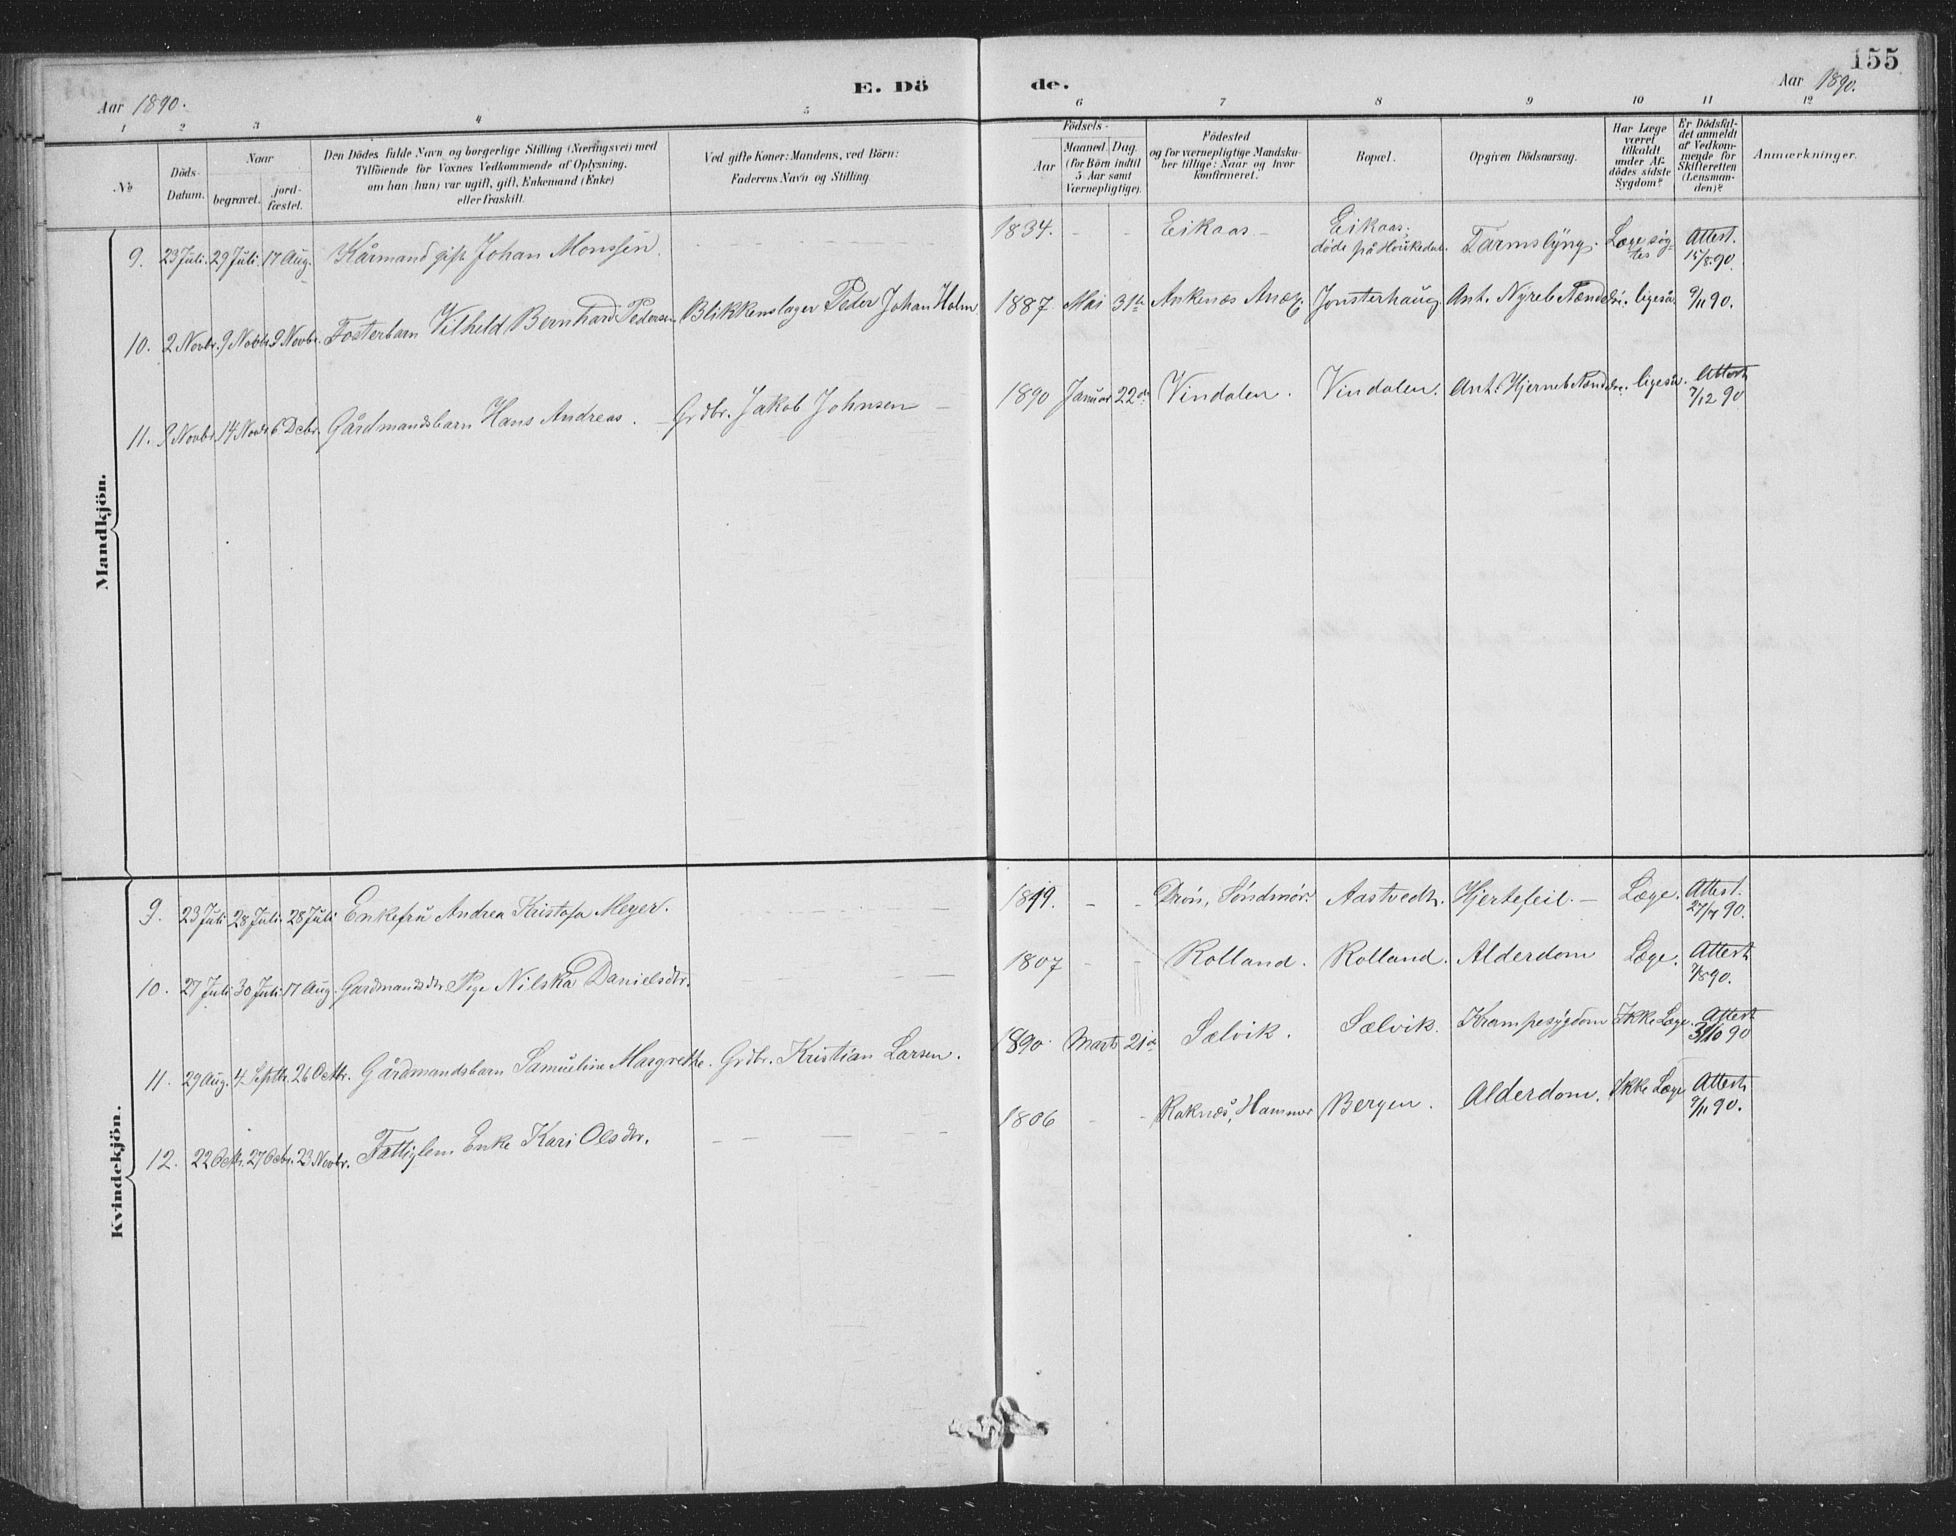 155
Aar 1890. E. Dö de. Aar 1890.
1 2 3 4 5 6 7 8 9 10 11 12
No
Döds-Datum.
Naar
begravet.
jord-fæstet.
Den Dödes fulde Navn og borgerlige Stilling (Næringsvei) med
Tilföiende for Voxnes Vedkommende af Oplysning.
om han (hun) var ugift, gift, Enkemand (Enke)
eller fraskilt.
Ved gifte Koner: Mandens, ved Börn:
Faderens Navn og Stilling.
Födsels-
Aar
Maaned. Dag.
(for Börn indtil
5 Aar samt
Værnepligtige).
Födested
og for værnepligtige Mandska-
ber tillige: Naar og hvor
konfirmeret.
Bopæl.
Opgiven Dödsaarsag.
Har Læge
været
tilkaldt
under Af-
dödes sidste
Sygdom?
Er Dödsfal-
det anmeldt
af Vedkom-
mende for
Skifteretten
(Lensman-
den)?
Anmærkninger.
Mandkjön.
9. 23 Juli. 29 Juli. 17 Aug. Kårmand gift Johan Monssen. 1834. - - Eikaas. Eikaas; døde på Houkedal. Tarmslyng. Læge søgtes Attest. 15/8.90.
10. 2 Novbr. 9 Novbr. 9 Novbr. Fosterbarn Vilheld Bernhard Pedersen Blikkenslager Peder Johan Holm 1887 Mai 31te Ankenæs Anex Jonsterhaug Ant. Nyreb. ligeså 9/11 90.
11. 9 Novbr. 14 Novbr. 6 Decbr. Gårdmandsbarn Hans Andreas. Grdbr. Jakob Johnsen 1890 Januar 22de Vindalen. Vindalen. Ant. Hjerneb. ligeså. Attest 7/12 90
Kvindekjön.
9. 23 Juli 28 Juli. 28 Juli Enkefru Andrea Kristofa Meyer. 1819. - - Søndmør. Aastvedt. Hjertefeil. Læge. Attest. 90.
10. 27 Juli. 30 Juli. 17 Aug. Gardmandsdtr. Pige Nilska Danielsdtr. 1807 - - Rolland. Rolland. Alderdom Læge. Attest 90.
11. 29 Aug. 4 Septbr. 26 Octbr. Gårdmandsbarn Samueline Margrethe. Grdbr. Kristian Larsen. 1890. Marts 21de Sælvik. Sælvik. Krampesygdom Ikke Læge. Attest 31/10 90
12. 22 Octbr. 27 Octbr. 23 Novbr. Fattiglem Enke Kari Olsdtr. 1806 - - Raknæs, Hammer Bergen. Alderdom. Ikke Læge Attest 9/11 90.